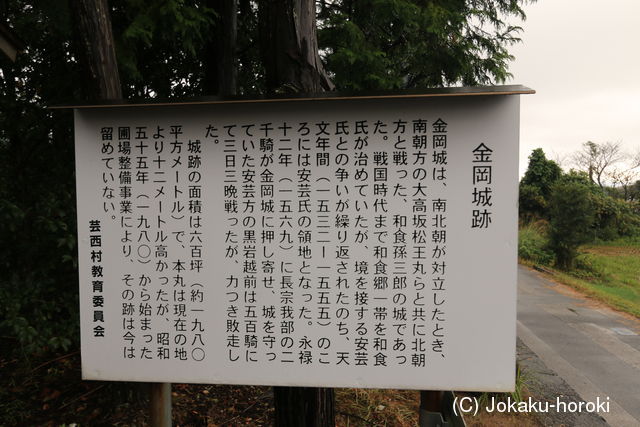 金岡城跡
金岡城は、南北朝が対立したとき、
南朝方の大高坂松王丸らと共に北朝
方と戦った、和食孫三郎の城であっ
た。戦国時代まで和食郷一帯を和食
氏が治めていたが、境を接する安芸
氏との争いが繰り返されたのち、天
文年間（一五三二ー一五五五）のこ
ろには安芸氏の領地となった。永禄
十二年（一五六九）に長宗我部の二
千騎が金岡城に押し寄せ、城を守っ
ていた安芸方の黒岩越前は五百騎に
て三日三晩戦ったが、力つき敗走し
た。
城跡の面積は六百坪（約一九八〇
平方メートル）で、本丸は現在の地
より十二メートル高かったが、昭和
五十五年（一九八〇）から始まった
圃場整備事業により、その跡は今は
留めていない。
芸西村教育委員会
(C) Jokaku-horoki